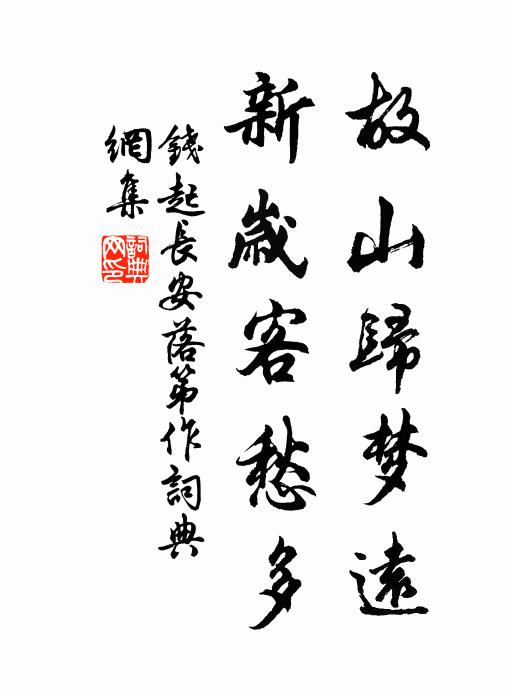 故山歸梦遠
新歲客愁多
錢起長安落第作詞典
網集
詞典
网印